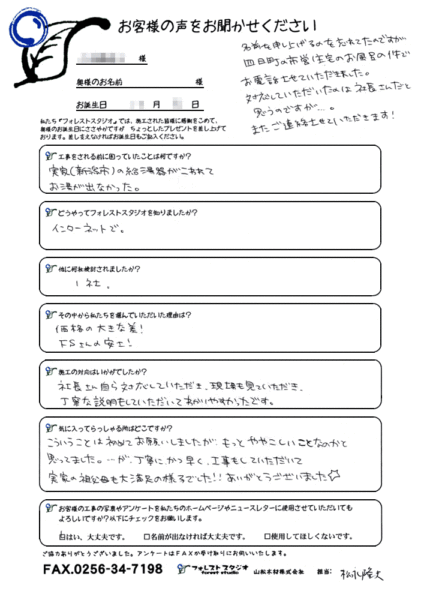 お客様の声をお聞かせください
様
奥様のお名前 様
お誕生日 月 日
名前を申し上げるのを忘れてたのですが、
四日町の市営住宅のお風呂の件で
お電話させていただきました。
対応していただいたのは社長さんだと
思うのですが…。
またご連絡させていただきます!
私たち『フォレストスタジオ』では、施工された皆様に感謝をこめて、
奥様のお誕生日にささやかですが ちょっとしたプレゼントを差し上げて
おります。差し支えなければお誕生日もご記入ください。
工事をされる前に困っていたことは何ですか?
実家(新潟市)の給湯器がこわれて
お湯が出なかった。
どうやってフォレストスタジオを知りましたか?
インターネットで。
他に何社検討されましたか?
1社。
その中から私たちを選んでいただいた理由は?
価格の大きな差!
FSさんの安さ!
施工の対応はいかがでしたか?
社長さん自ら対応していただき、現場も見ていただき、
丁寧な説明もしていただいてわかりやすかったです。
気に入ってらっしゃる所はどこですか?
こういうことは初めてお願いしましたが、もっとややこしいことなのかと
思ってました。…が、丁寧に、かつ早く、工事もしていただいて
実家の祖父母も大満足の様子でした!!ありがとうございました☆
お客様の工事の写真やアンケートを私たちのホームページやニュースレターに使用させていただいても
よろしいですか?以下にチェックをお願いします。
はい、大丈夫です。 □名前が出なければ大丈夫です。 □使用してほしくない です。
ご協力ありがとうございました。アンケートはFAXか受け取りにお伺いいたします。
FAX.0256-34-7198 フォレストスタジオ forest studio 山松木材株式会社 担当: